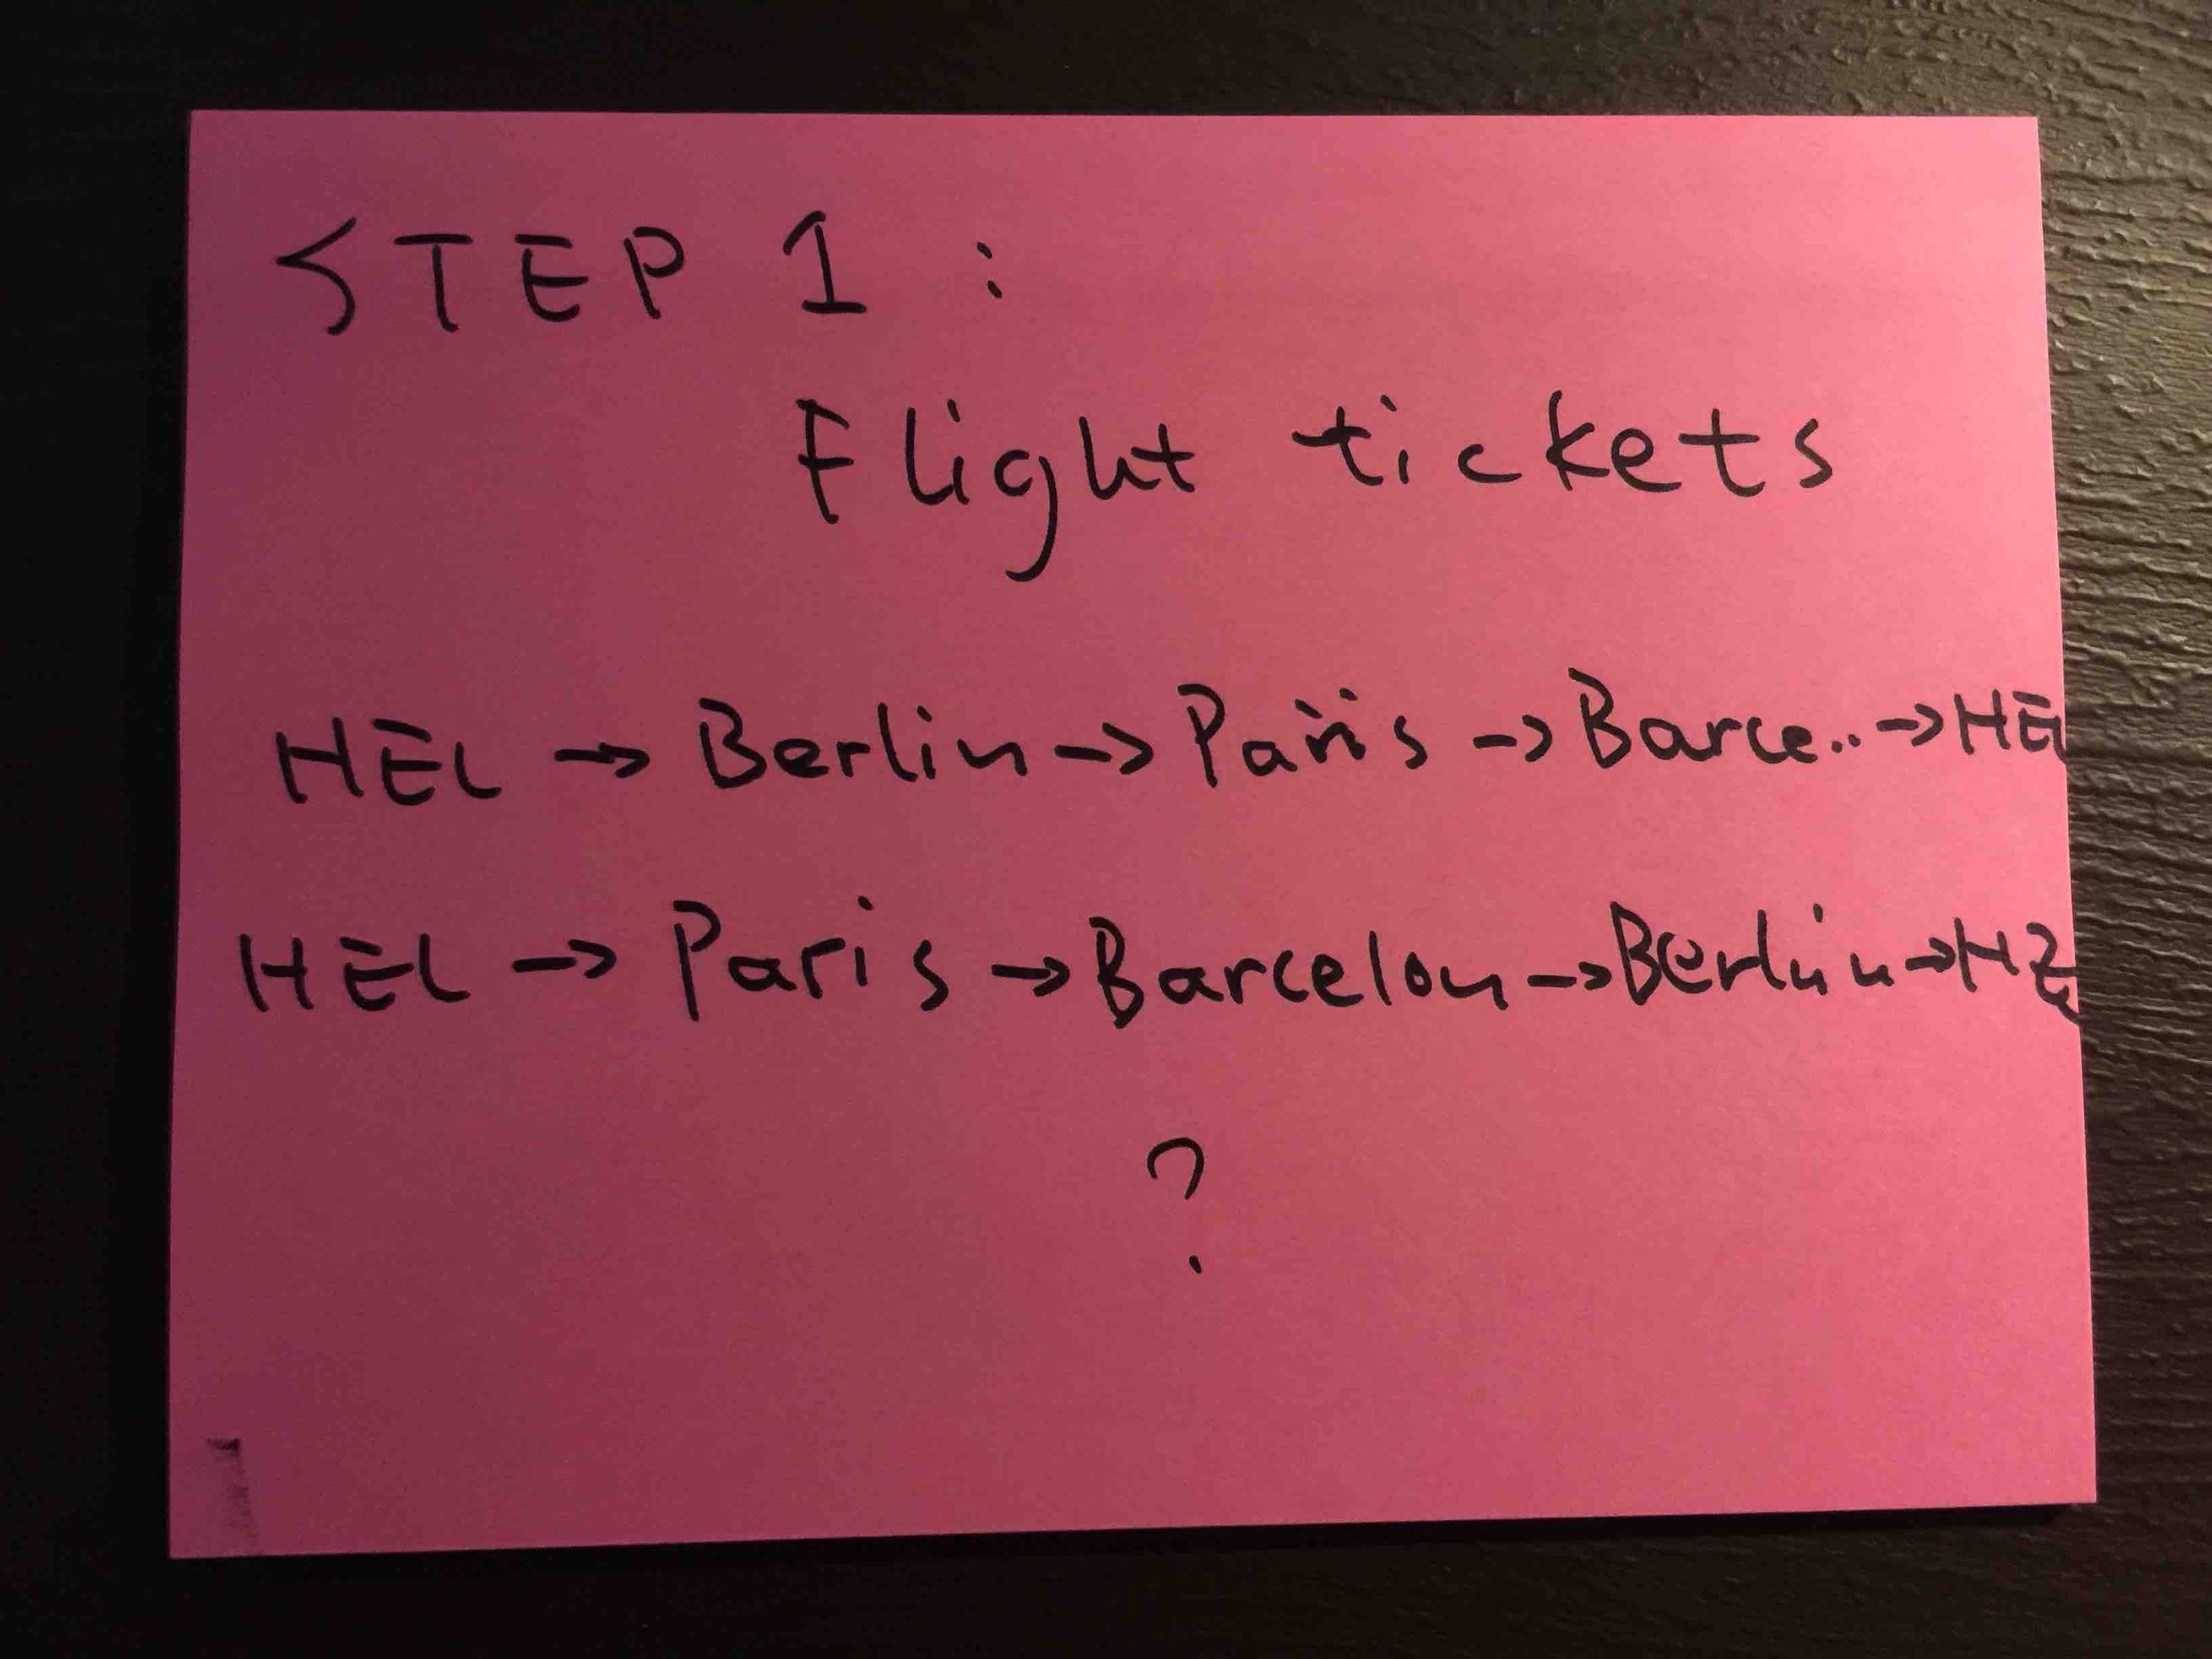 STEP 1 :
Flight tickets
HEL → Berlin → Paris → Barce.. → HEL
HEL → Paris → Barcelon → Berlin → HE
?